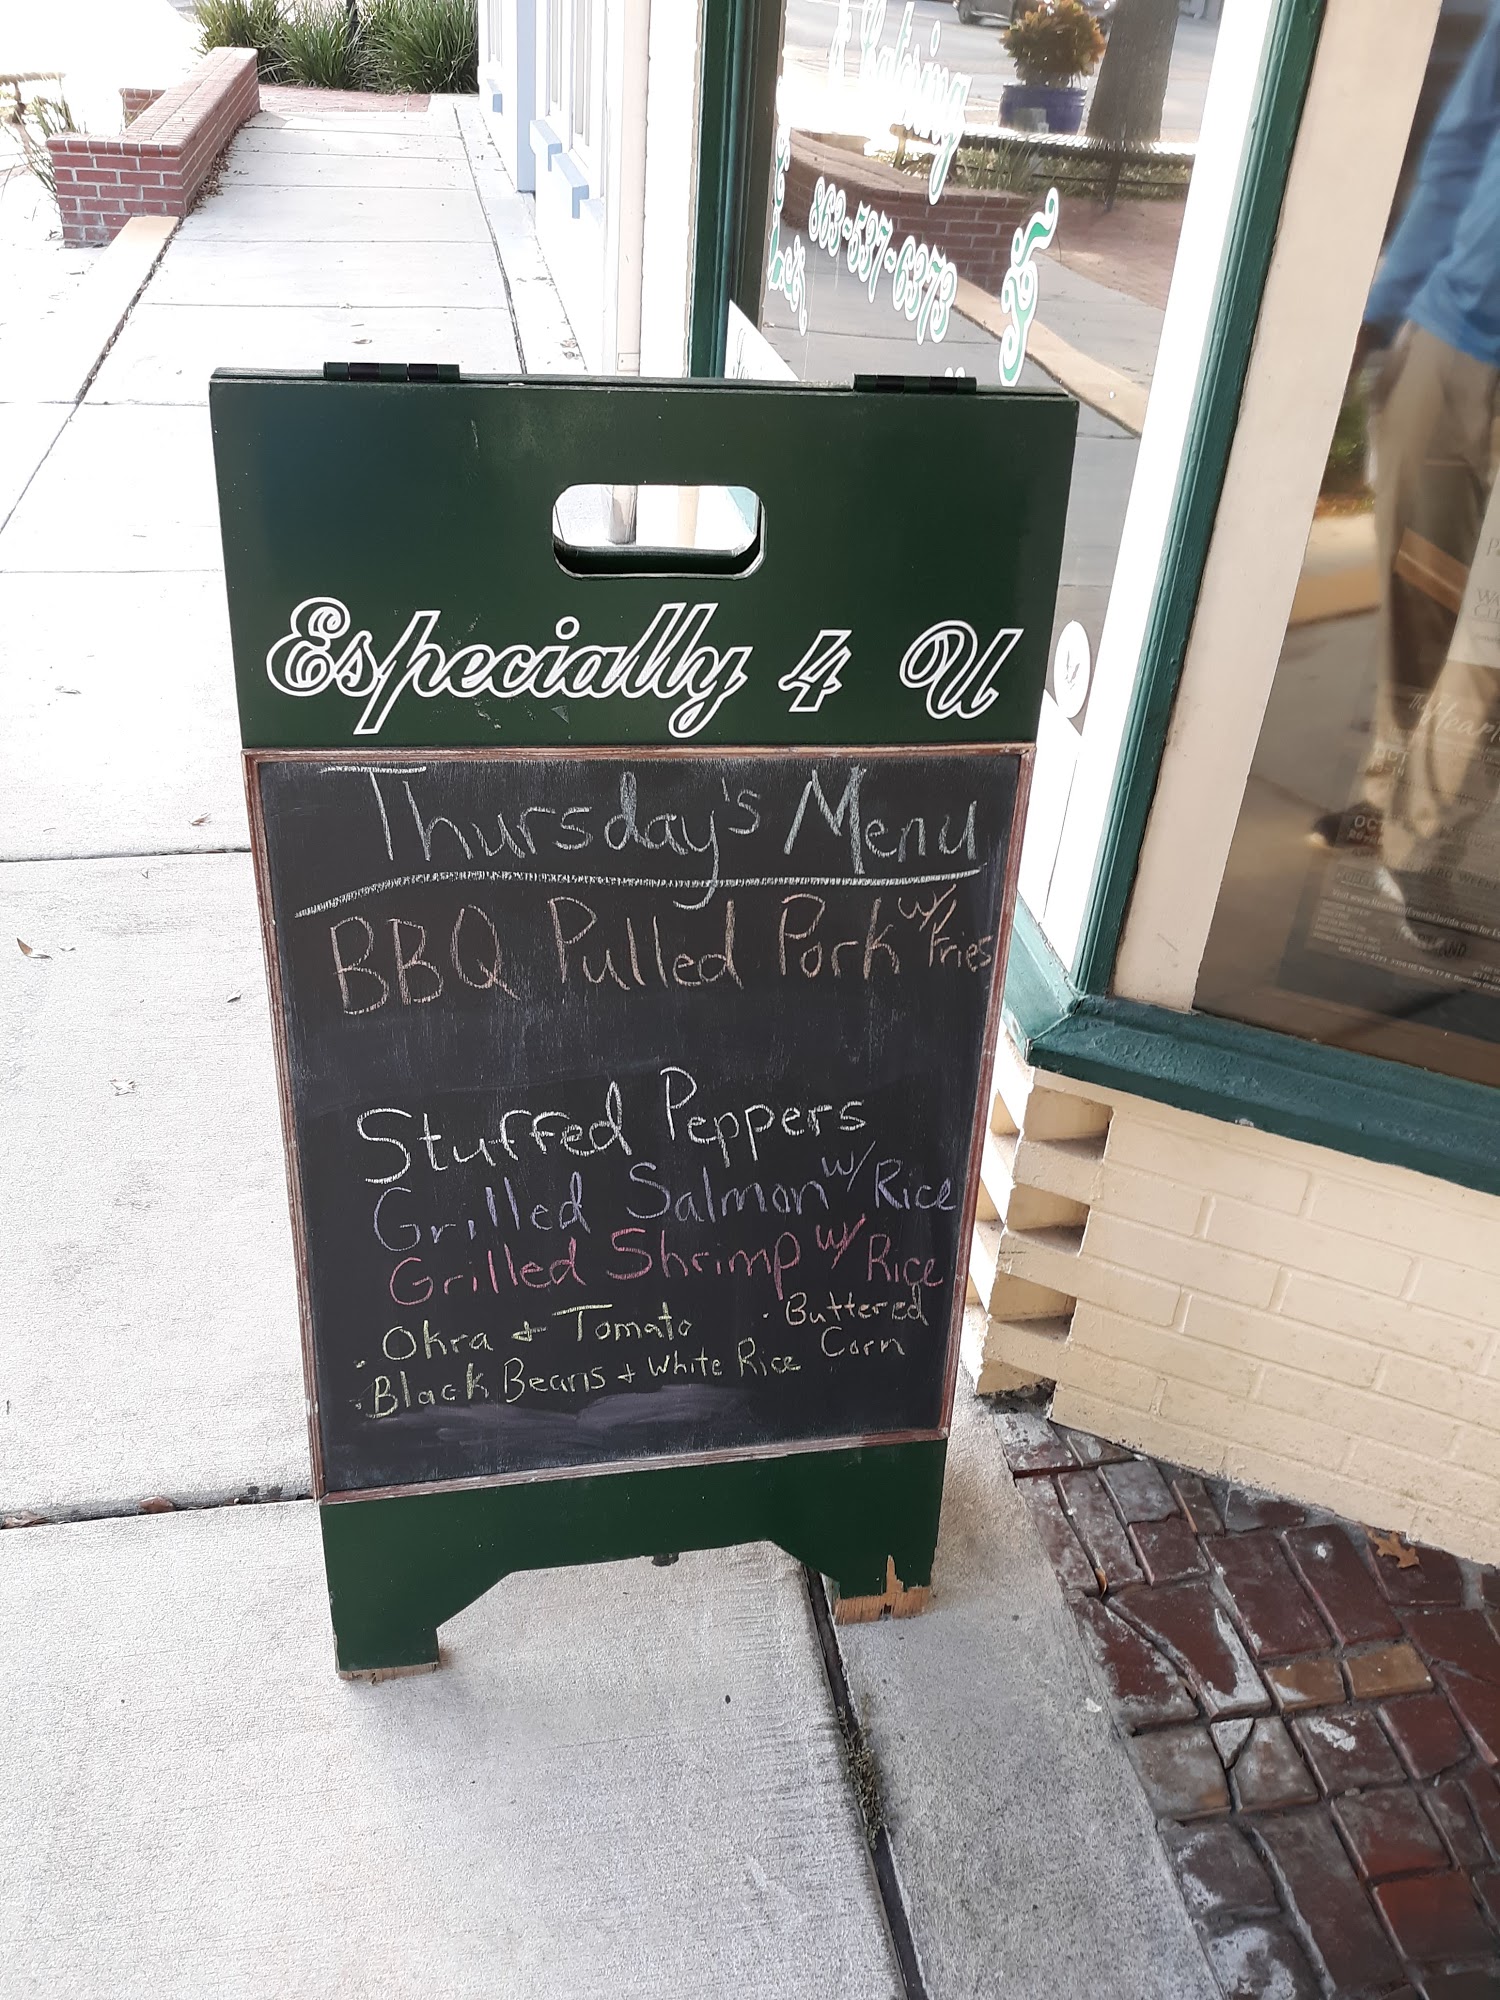 & Catering
863-537-6373
Especially 4 U
Thursday's Menu
BBQ Pulled Pork w/ Fries
Stuffed Peppers
Grilled Salmon w/ Rice
Grilled Shrimp w/ Rice
· Okra + Tomato
· Buttered Corn
· Black Beans + White Rice